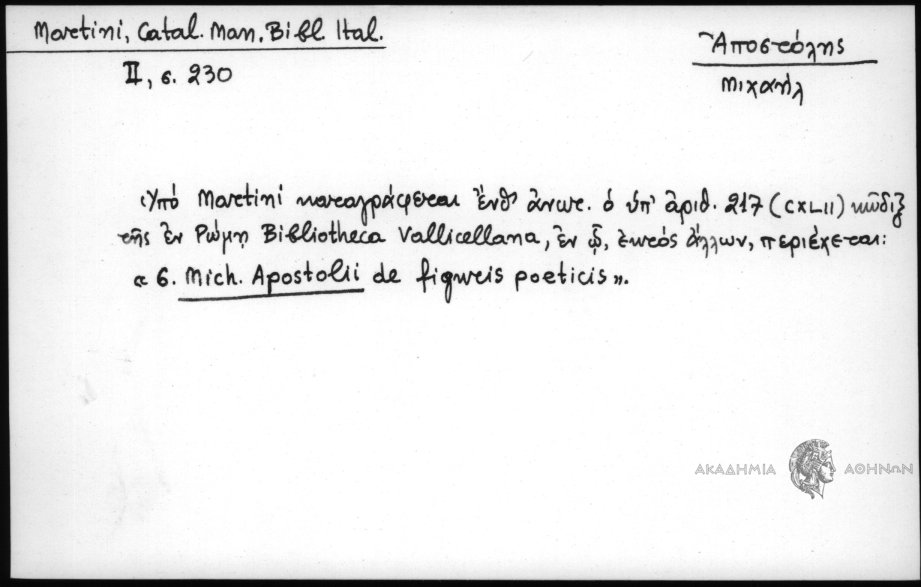 Martini, Catal. Man. Bibl Ital.
II, σ. 230
Ἀποστόλης
Μιχαήλ
Ὑπό Martini καταγράφεται ἔνθ' ἀνωτ. ὁ ὑπ' ἀριθ. 217 (CXLII) κῶδιξ
τῆς ἐν Ρώμῃ Bibliotheca Vallicellana, ἐν ᾧ, ἐκτός ἄλλων, περιέχεται:
« 6. Mich. Apostolii de figureis poeticis».
ΑΚΑΔΗΜΙΑ ΑΘΗΝΩΝ